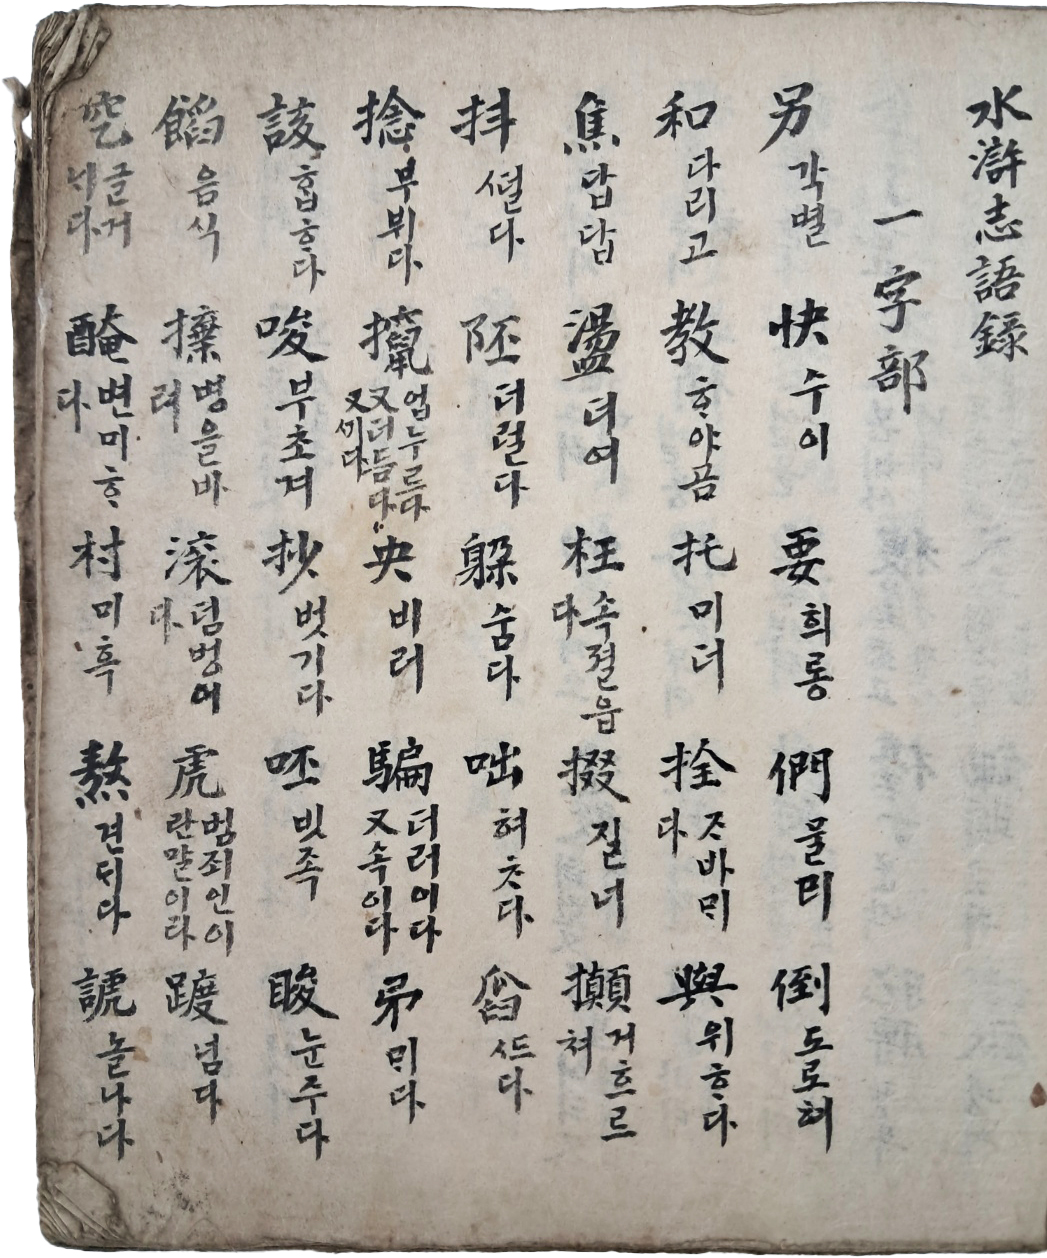 水滸志語錄
一字部
另 각별 快 수이 要 희롱 們 물믜 倒 도로혀
和 다리고 教 ᄒᆞ야곰 托 미더 拴 ᄌᆞ바ᄆᆡ다 與 위ᄒᆞ다
焦 답답 盪 더여 枉 속졀읍다 掇 질너 攧 거흐르쳐
抖 ᄯᅥᆯ다 邳 더럽다 躱 숨다 咄 혀ᄎᆞ다 舀 ᄯᅳ다
捻 부뷔다 攛 업누르다 又더듬다 又ᄭᅵ다 央 비러 騙 더러이다 又속이다 帚 ᄆᆡ다
該 흡ᄒᆞ다 唆 부초겨 抄 벗기다 呸 빗족 睃 눈주다
饀 음식 擦 병을바려 滚 덤벙여다 虎 범죄인이란말이라 踱 넘다
글거ᄂᆡ다 醃 변미ᄒᆞ다 村 미흑 熬 견듸다 諕 놀나다